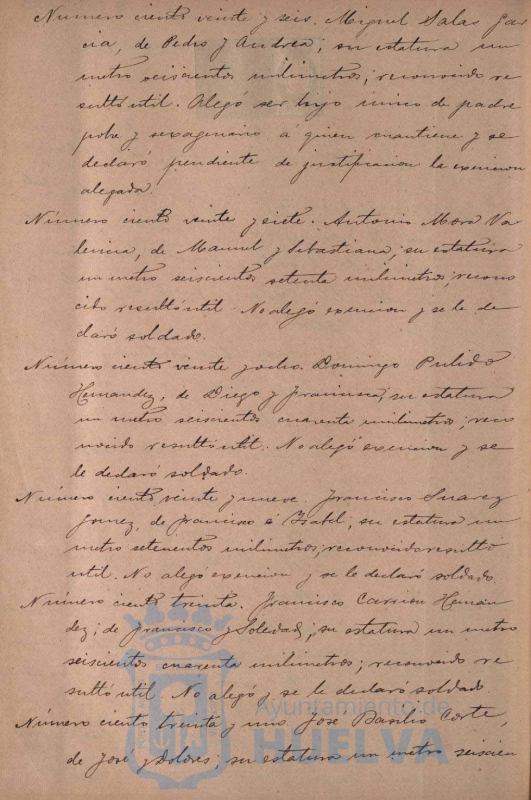 Número ciento veinte y seis. Miguel Salas Gar
cia, de Pedro y Andrea; su estatura un
metro seiscientos milimetros; reconocido re
sultó util. Alegó ser hijo unico de padre
pobre y sexagenario á quien mantiene y se
declaró pendiente de justificacion la exencion
alegada.
Número ciento veinte y siete. Antonio Mora Va
lencia, de Manuel y Sebastiana; su estatura
un metro seiscientos setenta milimetros; recono
cido resultó util. No alegó exencion y se le de
claró soldado.
Número ciento veinte y ocho. Domingo Pulido
Hernandez, de Diego y Francisca; su estatura
un metro seiscientos cuarenta milimetros; reco
nocido resultó util. No alegó exencion y se
le declaró soldado.
Número ciento veinte y nueve. Francisco Suarez
Gomez, de Francisco é Isabel; su estatura un
metro setecientos milimetros; reconocido resultó
util. No alegó exencion y se le declaró soldado.
Número ciento treinta. Francisco Carrion Hernan
dez; de Francisco y Soledad; su estatura un metro
seiscientos cuarenta milimetros; reconocido re
sultó util No alegó y se le declaró soldado
Número ciento treinta y uno. José Basilio Corte,
de José y Dolores; su estatura un metro seiscien
Ayuntamiento de
HUELVA